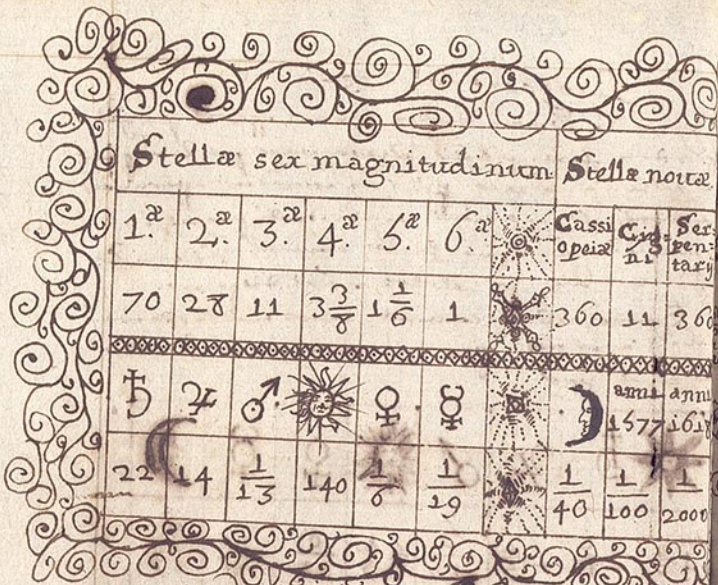 Stellæ sex magnitudinum. Stellæ nouæ.
1.æ 2.æ 3.æ 4.æ 5.æ 6.æ Cassiopeiæ Cygni Serpentarÿ
70 28 11 3 3/8 1 1/6 1 360 11 360
♄ ♃ ♂ ♀ ☿ anni 1577 anni 1618
22 14 1/13 140 1/6 1/19 1/40 1/100 1/2000